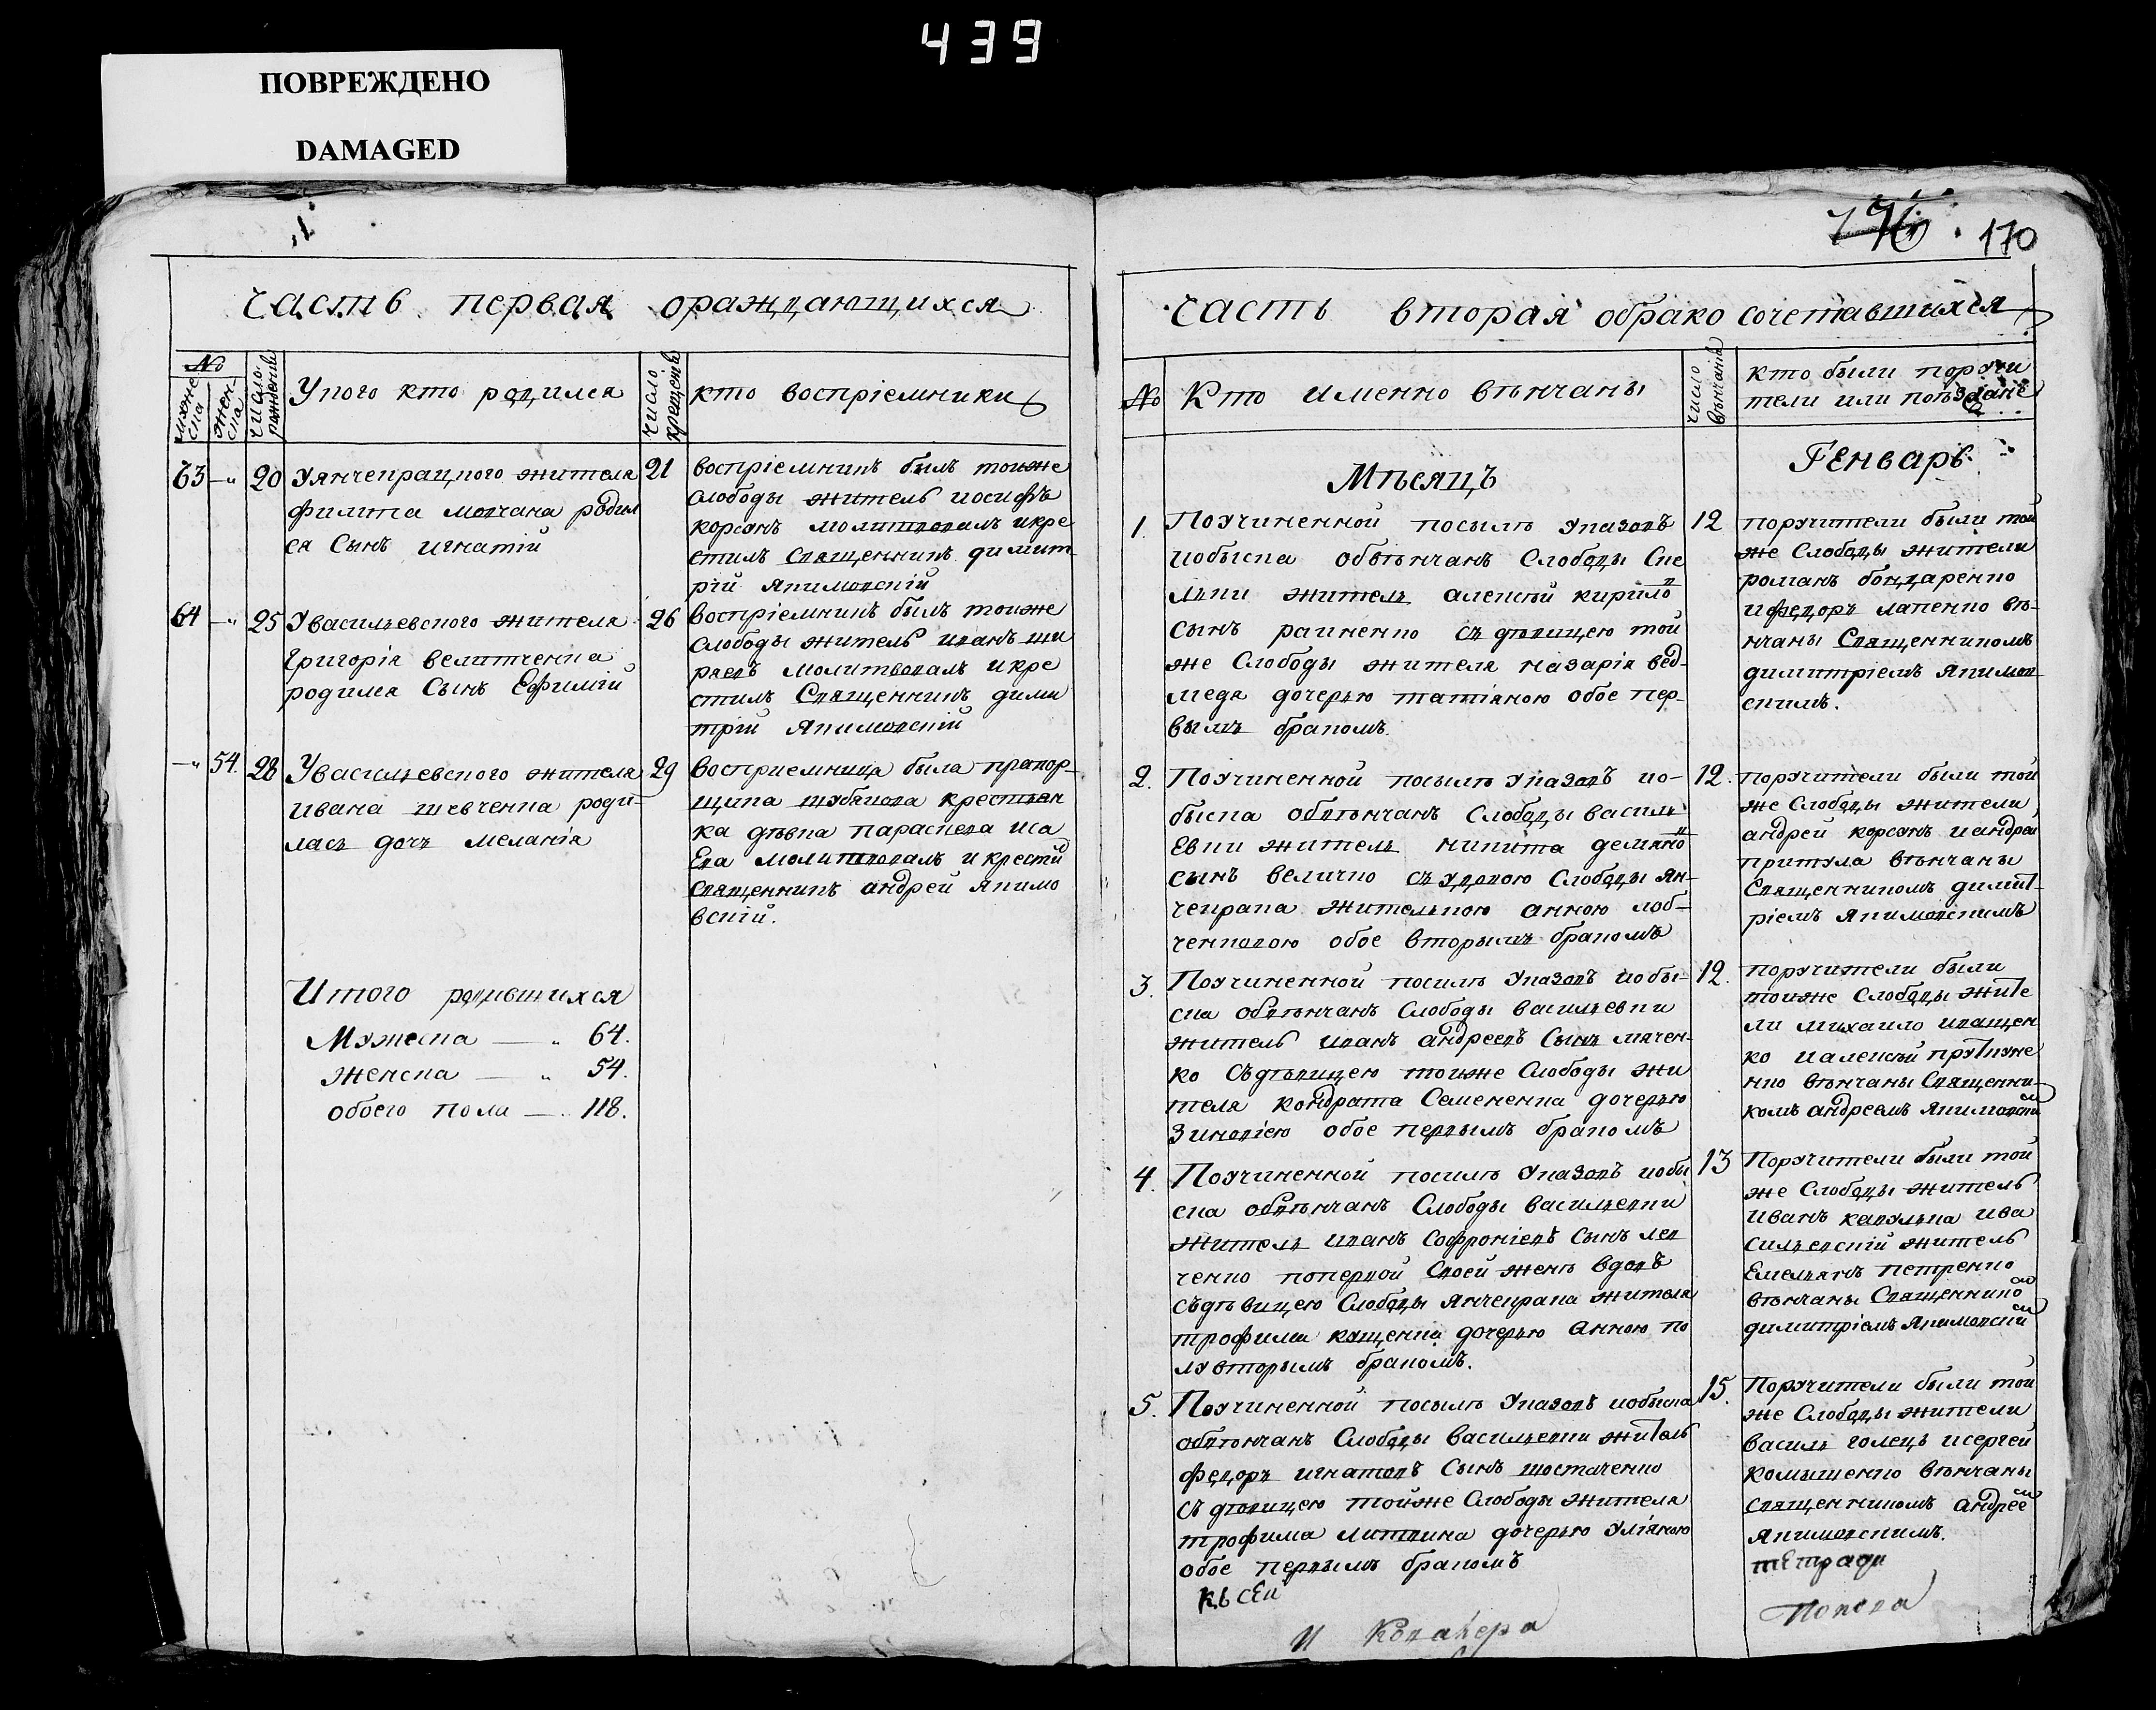 439
ПОВРЕЖДЕНО
DAMAGED
170
часть первая ораждающихся
№
мужеска
женска
число рождения
У кого кто родился
число крещения
кто воспріемники
63 —" 20 Уянчекрацкого жителя
филипа молчана родил
ся Сынъ игнатій
21 воспріемникъ былъ тоиже
слободы житель иосифъ
корсунъ молитвовалъ икре
стилъ Священникъ димит-
рій якимовскій
64 —" 25 Увасильевского жителя
григорія величченка
родился Сынъ Ефимій
26 воспріемникъ былъ тоиже
слободы житель иванъ ши
раевъ молитвовалъ икре
стилъ Священникъ дими
трій якимовскій
—" 54. 28 Увасильевского жителя
ивана шевченка роди-
лась дочь меланія
29 восприемница была прапор-
щика шубякова крестьян
ка девка параскева иса
Ева молитвовалъ и крести
священникъ андрей якимо
вскій.
Итого родившихся
Мужеска — " 64.
женска — " 54.
обоего пола — " 118.
часть вторая обрако сочетавшихся
№
Кто именно вѣнчаны
число вѣнчанія
кто были поручи
тели или поѣзжане
Мѣсяцъ
Генварь
1. Поучиненной посылѣ указовъ
иобыска обвѣнчанъ Слободы Спе
льки житель алексѣй кирило
сынъ раиненко съ дѣвицею той
же Слободы жителя назарія вед-
медя дочерью татіяною обое пер-
вымъ бракомъ.
12 поручители были той
же Слободы жители
романъ бондаренко
ифедоръ лапенко вѣ-
нчаны Священникомъ
димитріемъ якимов
скимъ.
2. Поучиненной посылѣ указовъ ио-
быска обвѣнчанъ Слободы василь
евки житель никита демяно
сынъ величко съ удовою Слободы ян-
чекрака жителькою анною лоб-
ченковою обое вторымъ бракомъ
12. поручители были той
же Слободы жители
андрей корсунъ иандрей
притула вѣнчаны
Священникомъ димит-
ріемъ якимовскимъ
3. Поучиненной посилѣ указовъ иобы-
ска обвѣнчанъ Слободы васильевки
житель иванъ андреевъ Сынъ мячен-
ко съдѣвицею тоиже Слободы жи
теля кондрата Семененка дочерью
Зиновіею обое первымъ бракомъ
12. поручители были
тоиже Слободы жите
ли михаило иващен
ко иалексѣй
вѣнчаны Священни-
комъ андреемъ якимовски
4. Поучиненной посилѣ указовъ иобы
ска обвѣнчанъ Слободы васильевки
житель иванъ софроніевъ сынъ лев
ченко поперной своей женѣ вдовъ
съдѣвицею Слободы янчекрака жителя
трофима кущенка дочерью анною по
лувторымъ бракомъ.
13 Поручители были той
же Слободы житель
иванъ кавулька ива
сильевскій житель
Емельянъ петренко
вѣнчаны Священнико
димитріемъ якимовски
5. Поучиненной посылѣ указовъ иобыска
обвѣнчанъ Слободы васильевки житель
федоръ игнатовъ Сынъ шостаченко
съ дѣвицею тойже Слободы жителя
трофима литвина дочерью уліяною
обое первымъ бракомъ
15. Поручители были той
же Слободы жители
василь голецъ исергей
комышенко вѣнчаны
священникомъ андрее
якимовскимъ.
къ сей
тетради
и Кавалера
Попова